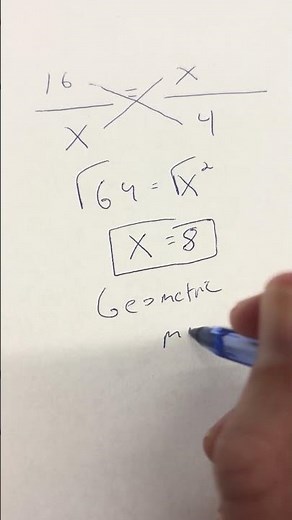 16/x = x/4
√64 = √x²
x = 8
Geometric
m